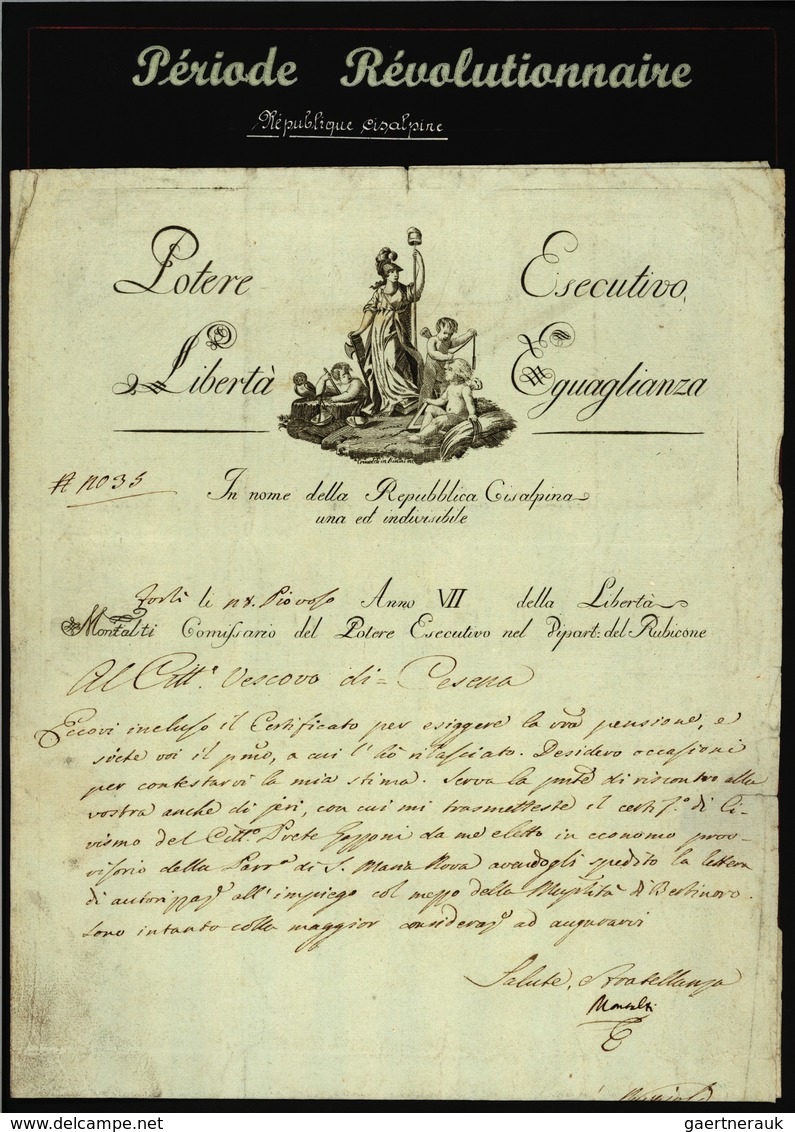 Période Révolutionnaire
République cisalpine
Potere Esecutivo
Libertà Eguaglianza
In nome della Repubblica Cisalpina
una ed indivisibile
Forlì li Piovoso Anno VII della Libertà
Montalti Comissario del Potere Esecutivo nel Dipart: del Rubicone
Al Citt.º Vescovo di Cesena
Eccovi incluso il Certificato per esiggere la vrã pensione, e
siete voi il pmõ, a cui l'hò rilasciato. Desidero occasioni
per contestarvi la mia stima. Serva la pnte di riscontro alla
vostra anche di jeri, con cui mi trasmetteste il certifº. di Ci-
vismo del Citt.º Prete da me eletto in economo prov-
visorio della Parr.ª di S. Maria Nova avendogli spedito la lettera
di autorizzazº. all'impiego col mezzo della di Bertinoro.
Sono intanto colla maggior considerazº. ad augurarvi
Salute, Fratellanza
Montalti
gaertnerauk